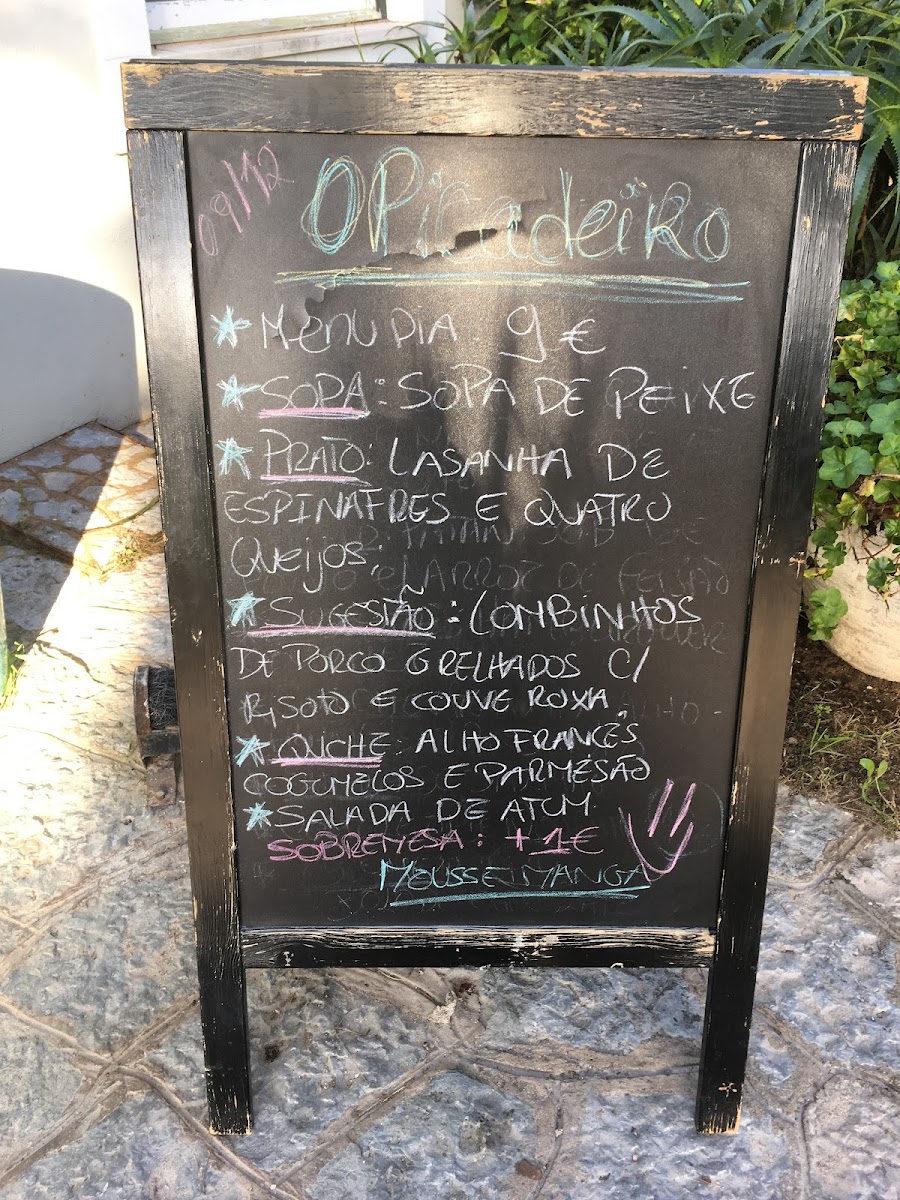 09/12
O Picadeiro
* MENU DIA 9 €
* SOPA: SOPA DE PEIXE
* PRATO: LASANHA DE
ESPINAFRES E QUATRO
QUEIJOS;
* SUGESTÃO: LOMBINHOS
DE PORCO GRELHADOS C/
RISOTO E COUVE ROXA
* QUICHE: ALHO FRANCÊS
COGUMELOS E PARMESÃO
* SALADA DE ATUM
SOBREMESA: +1€
MOUSSE MANGA